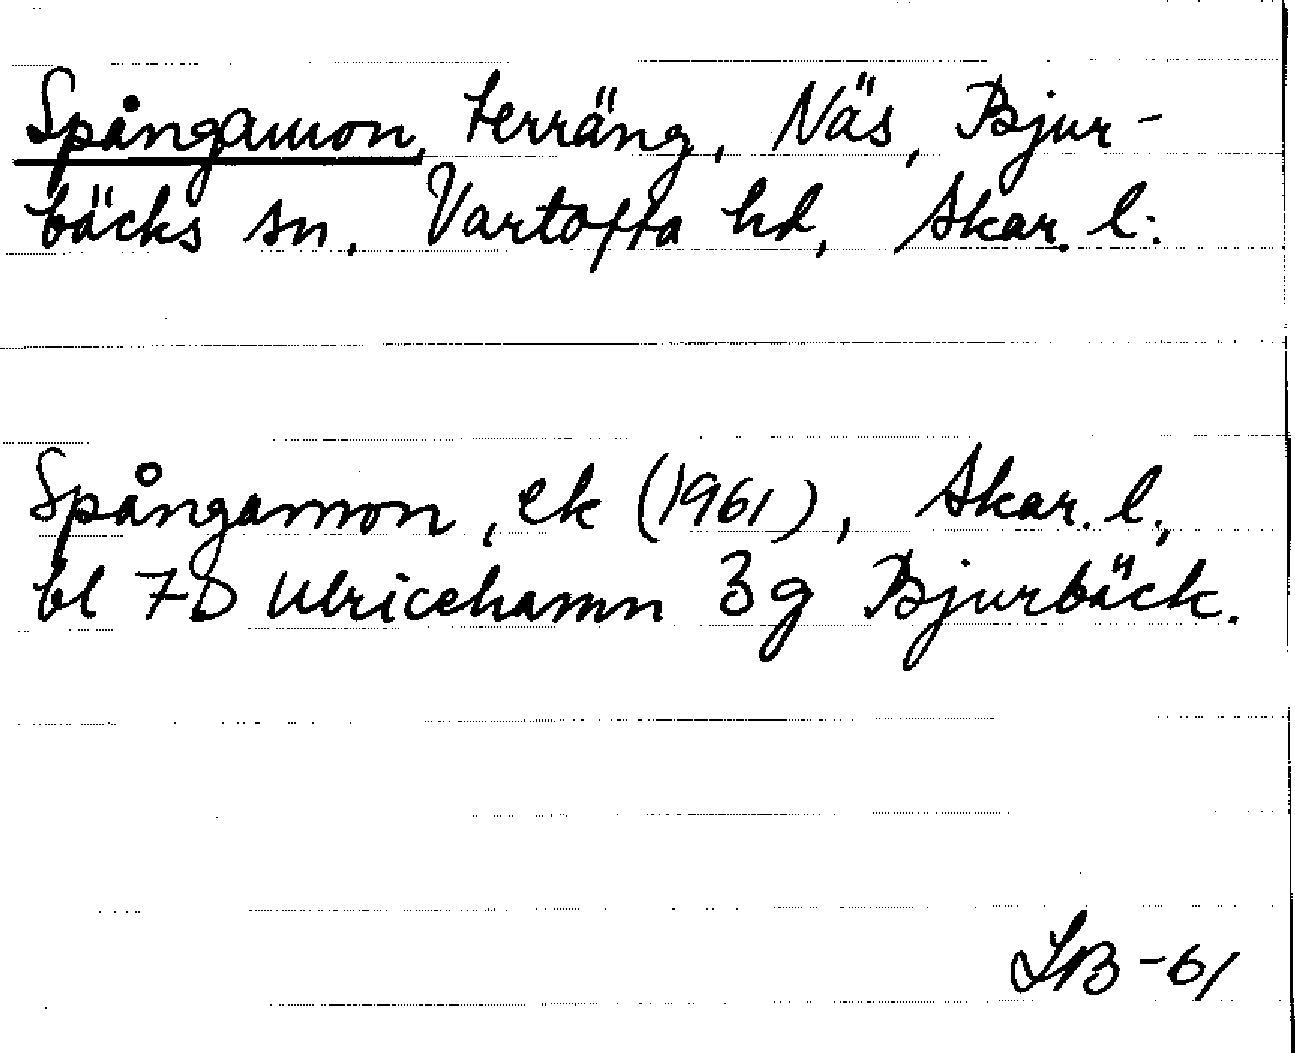 Spångamon, terräng, Näs, Bjur-
bäcks sn, Vartofta hd, Skar. l.
Spångamon, ek (1961), Skar. l.,
bl 7D Ulricehamn 3g Bjurbäck.
-61